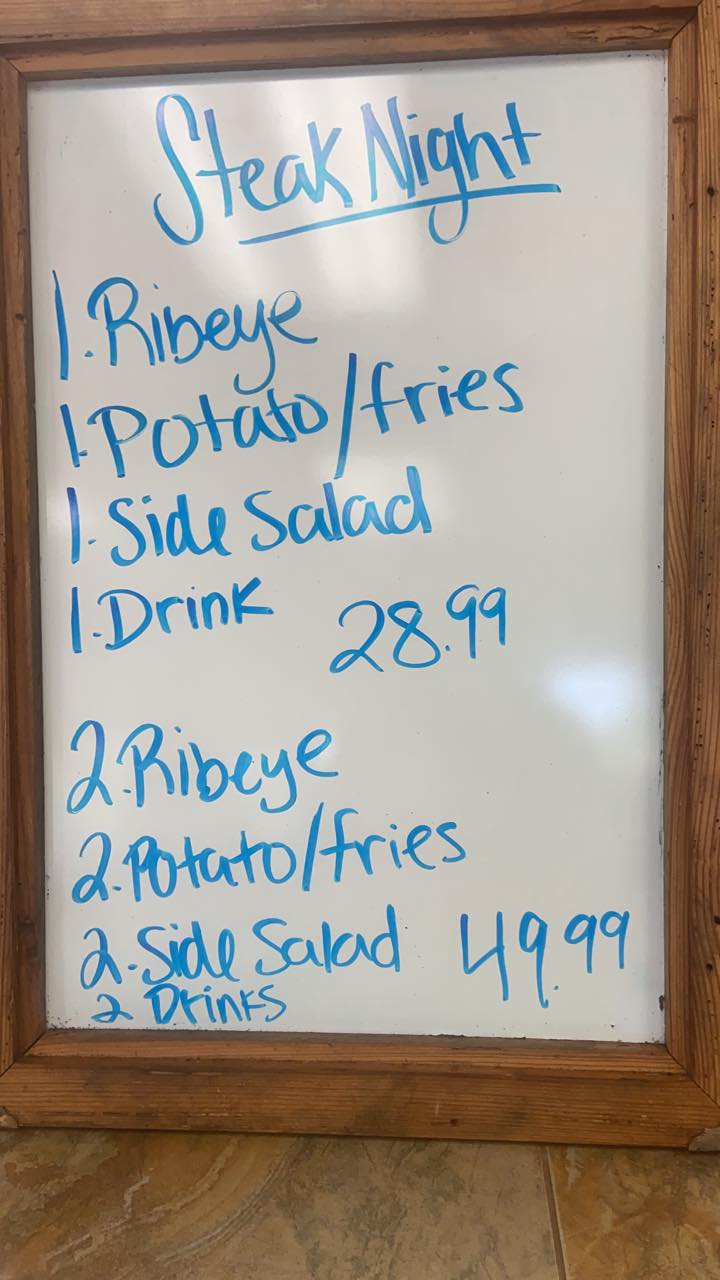 Steak Night
1. Ribeye
1. Potato/fries
1. Side Salad
1. Drink 28.99
2. Ribeye
2. Potato/fries
2. Side Salad 49.99
2 Drinks